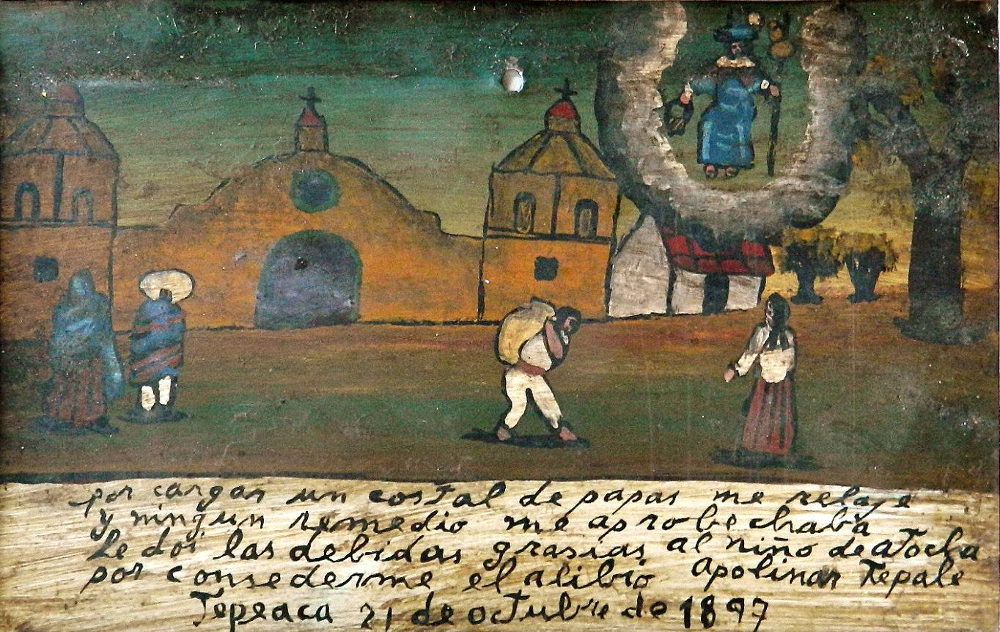 por cargar un costal de papas me relaje
y ningun remedio me aprobechaba
Le doi las debidas grasias al niño de atocha
por consederme el alibio Apolinar Tepale
Tepeaca 21 de octubre de 1897